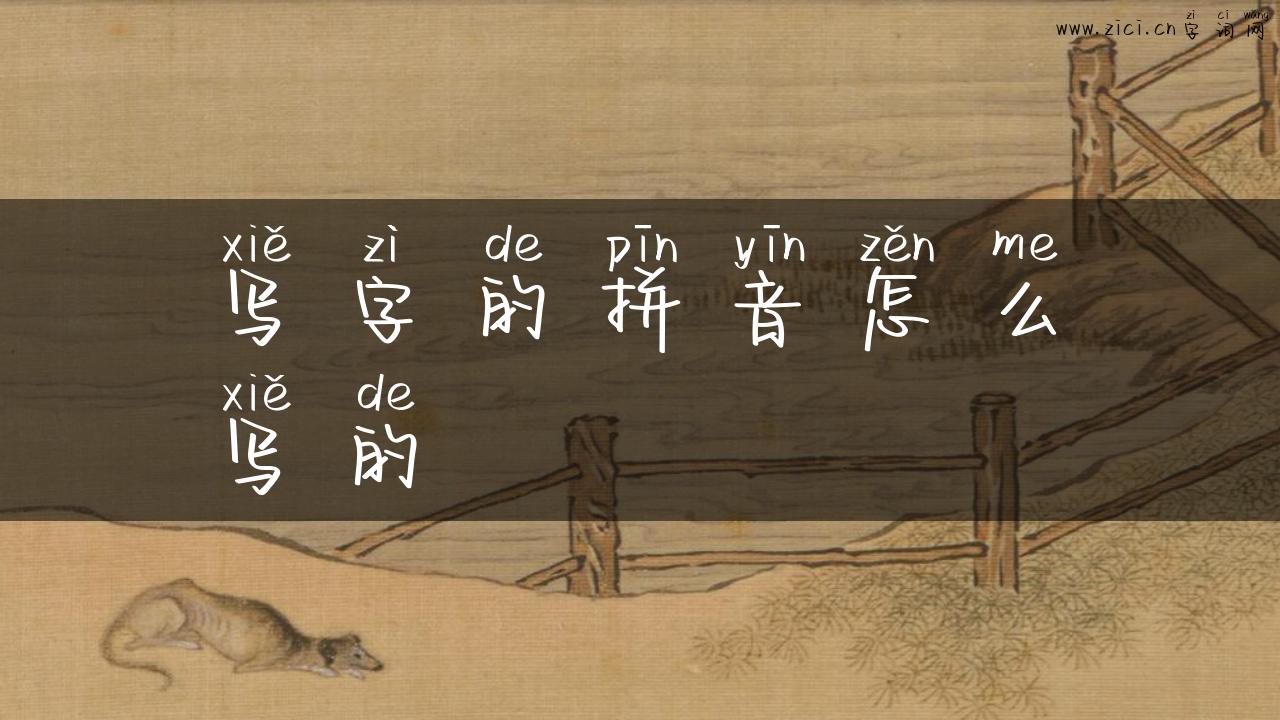 zi ci wang
www.zici.cn 字词网
xiě zì de pīn yīn zěn me
写字的拼音怎么
xiě de
写的